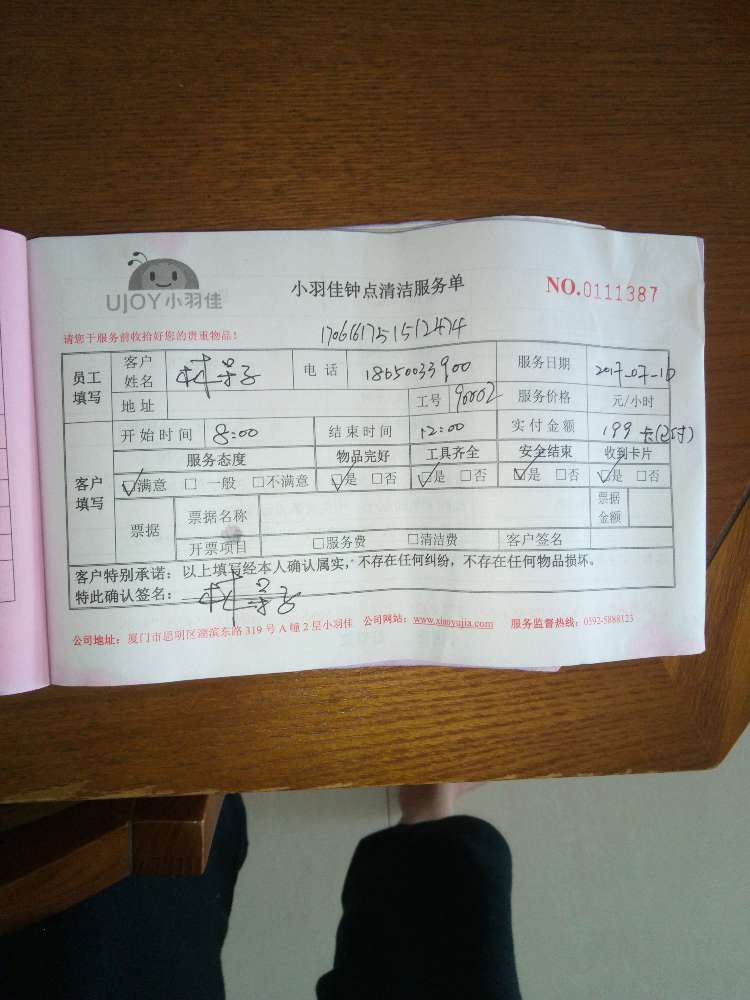 UJOY小羽佳
小羽佳钟点清洁服务单
NO.0111387
请您于服务前收拾好您的贵重物品！
员工填写 客户姓名 林 子 电话 18650033900 服务日期 2017-07-1
地址 工号 90002 服务价格 元/小时
客户填写 开始时间 8:00 结束时间 12:00 实付金额 199 卡(已付)
服务态度 物品完好 工具齐全 安全结束 收到卡片
☑满意 □一般 □不满意 ☑是 □否 ☑是 □否 ☑是 □否 ☑是 □否
票据 票据名称 票据金额
开票项目 □服务费 □清洁费 客户签名
客户特别承诺：以上填写经本人确认属实，不存在任何纠纷，不存在任何物品损坏。
特此确认签名： 林 子
公司地址：厦门市思明区湖滨东路 319 号 A 幢 2 层小羽佳 公司网站：www.xiaoyujia.com 服务监督热线：0592-5888123